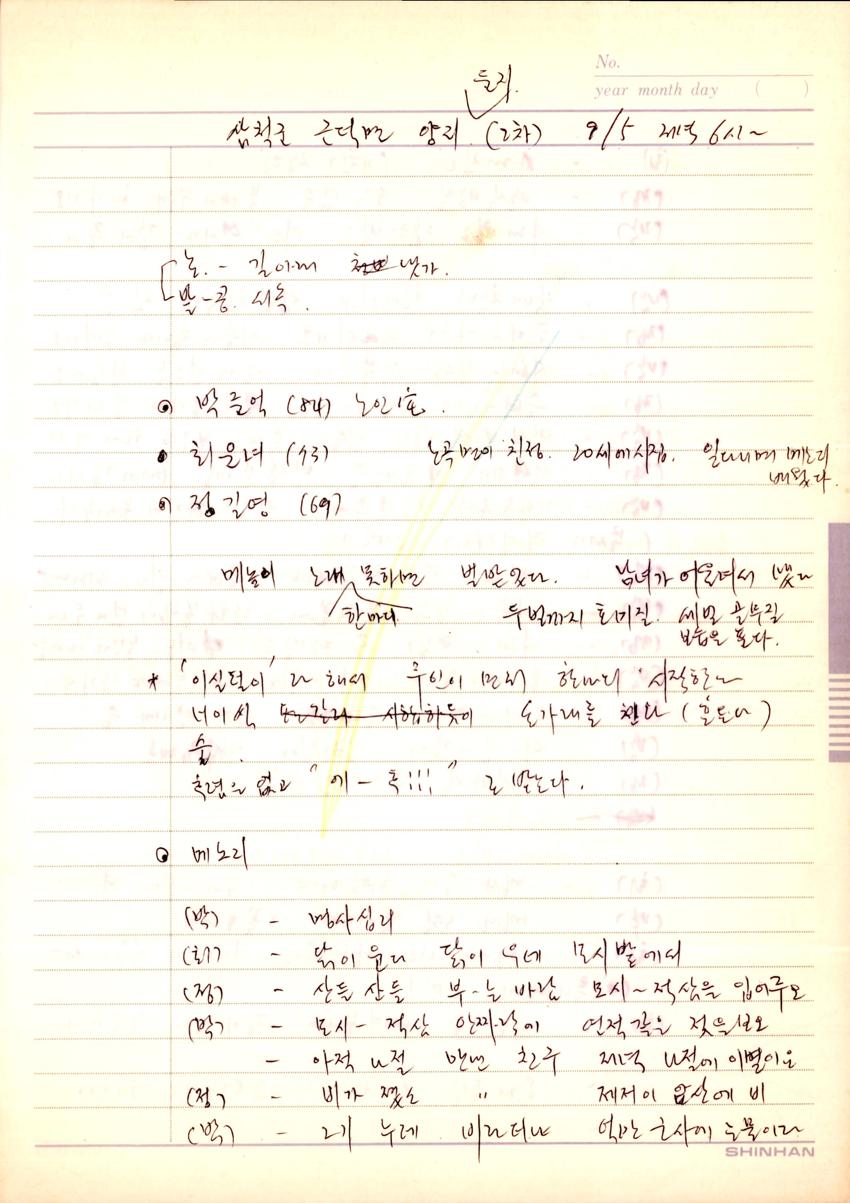 No.
year month day ( )
들지.
삼척군 근덕면 양리 (2차) 9/5 제녁 6시~
논. - 길아래 냇가.
밭 - 콩. 서숙.
박들억 (84) 노인1호.
최을녀 (73) 노곡면이 친정. 20세에 시집. 일다니며 메노리
배웠다.
정길영 (69)
메놀이 노래 못하면 벌받았다. 남녀가 어울려서 했다
한마디 두벌까지 호미질. 세벌 골부질
보습을 푼다.
* '이실털이'라 해서 주인이 먼저 한마디 시작한
너이씩 도가래를 친다 (홀토나)
술
후렴은 없고 "에- 훅!!!" 로 받는다.
메노리
(박) - 명사십리
(최) - 닭이 운다 닭이 우네 모시밭에서
(정) - 산들 산들 부-는 바람 모시~적삼을 입어주오
(박) - 모시- 적삼 안짜락에 연적같은 젖을보오
- 아적 나절 만난 친구 제녁 나절에 이별이오
(정) - 비가 졌소 〃 제저이 앞산에 비
(박) - 그기 누레 비라더냐 억만 군사에 눈물이라
SHINHAN